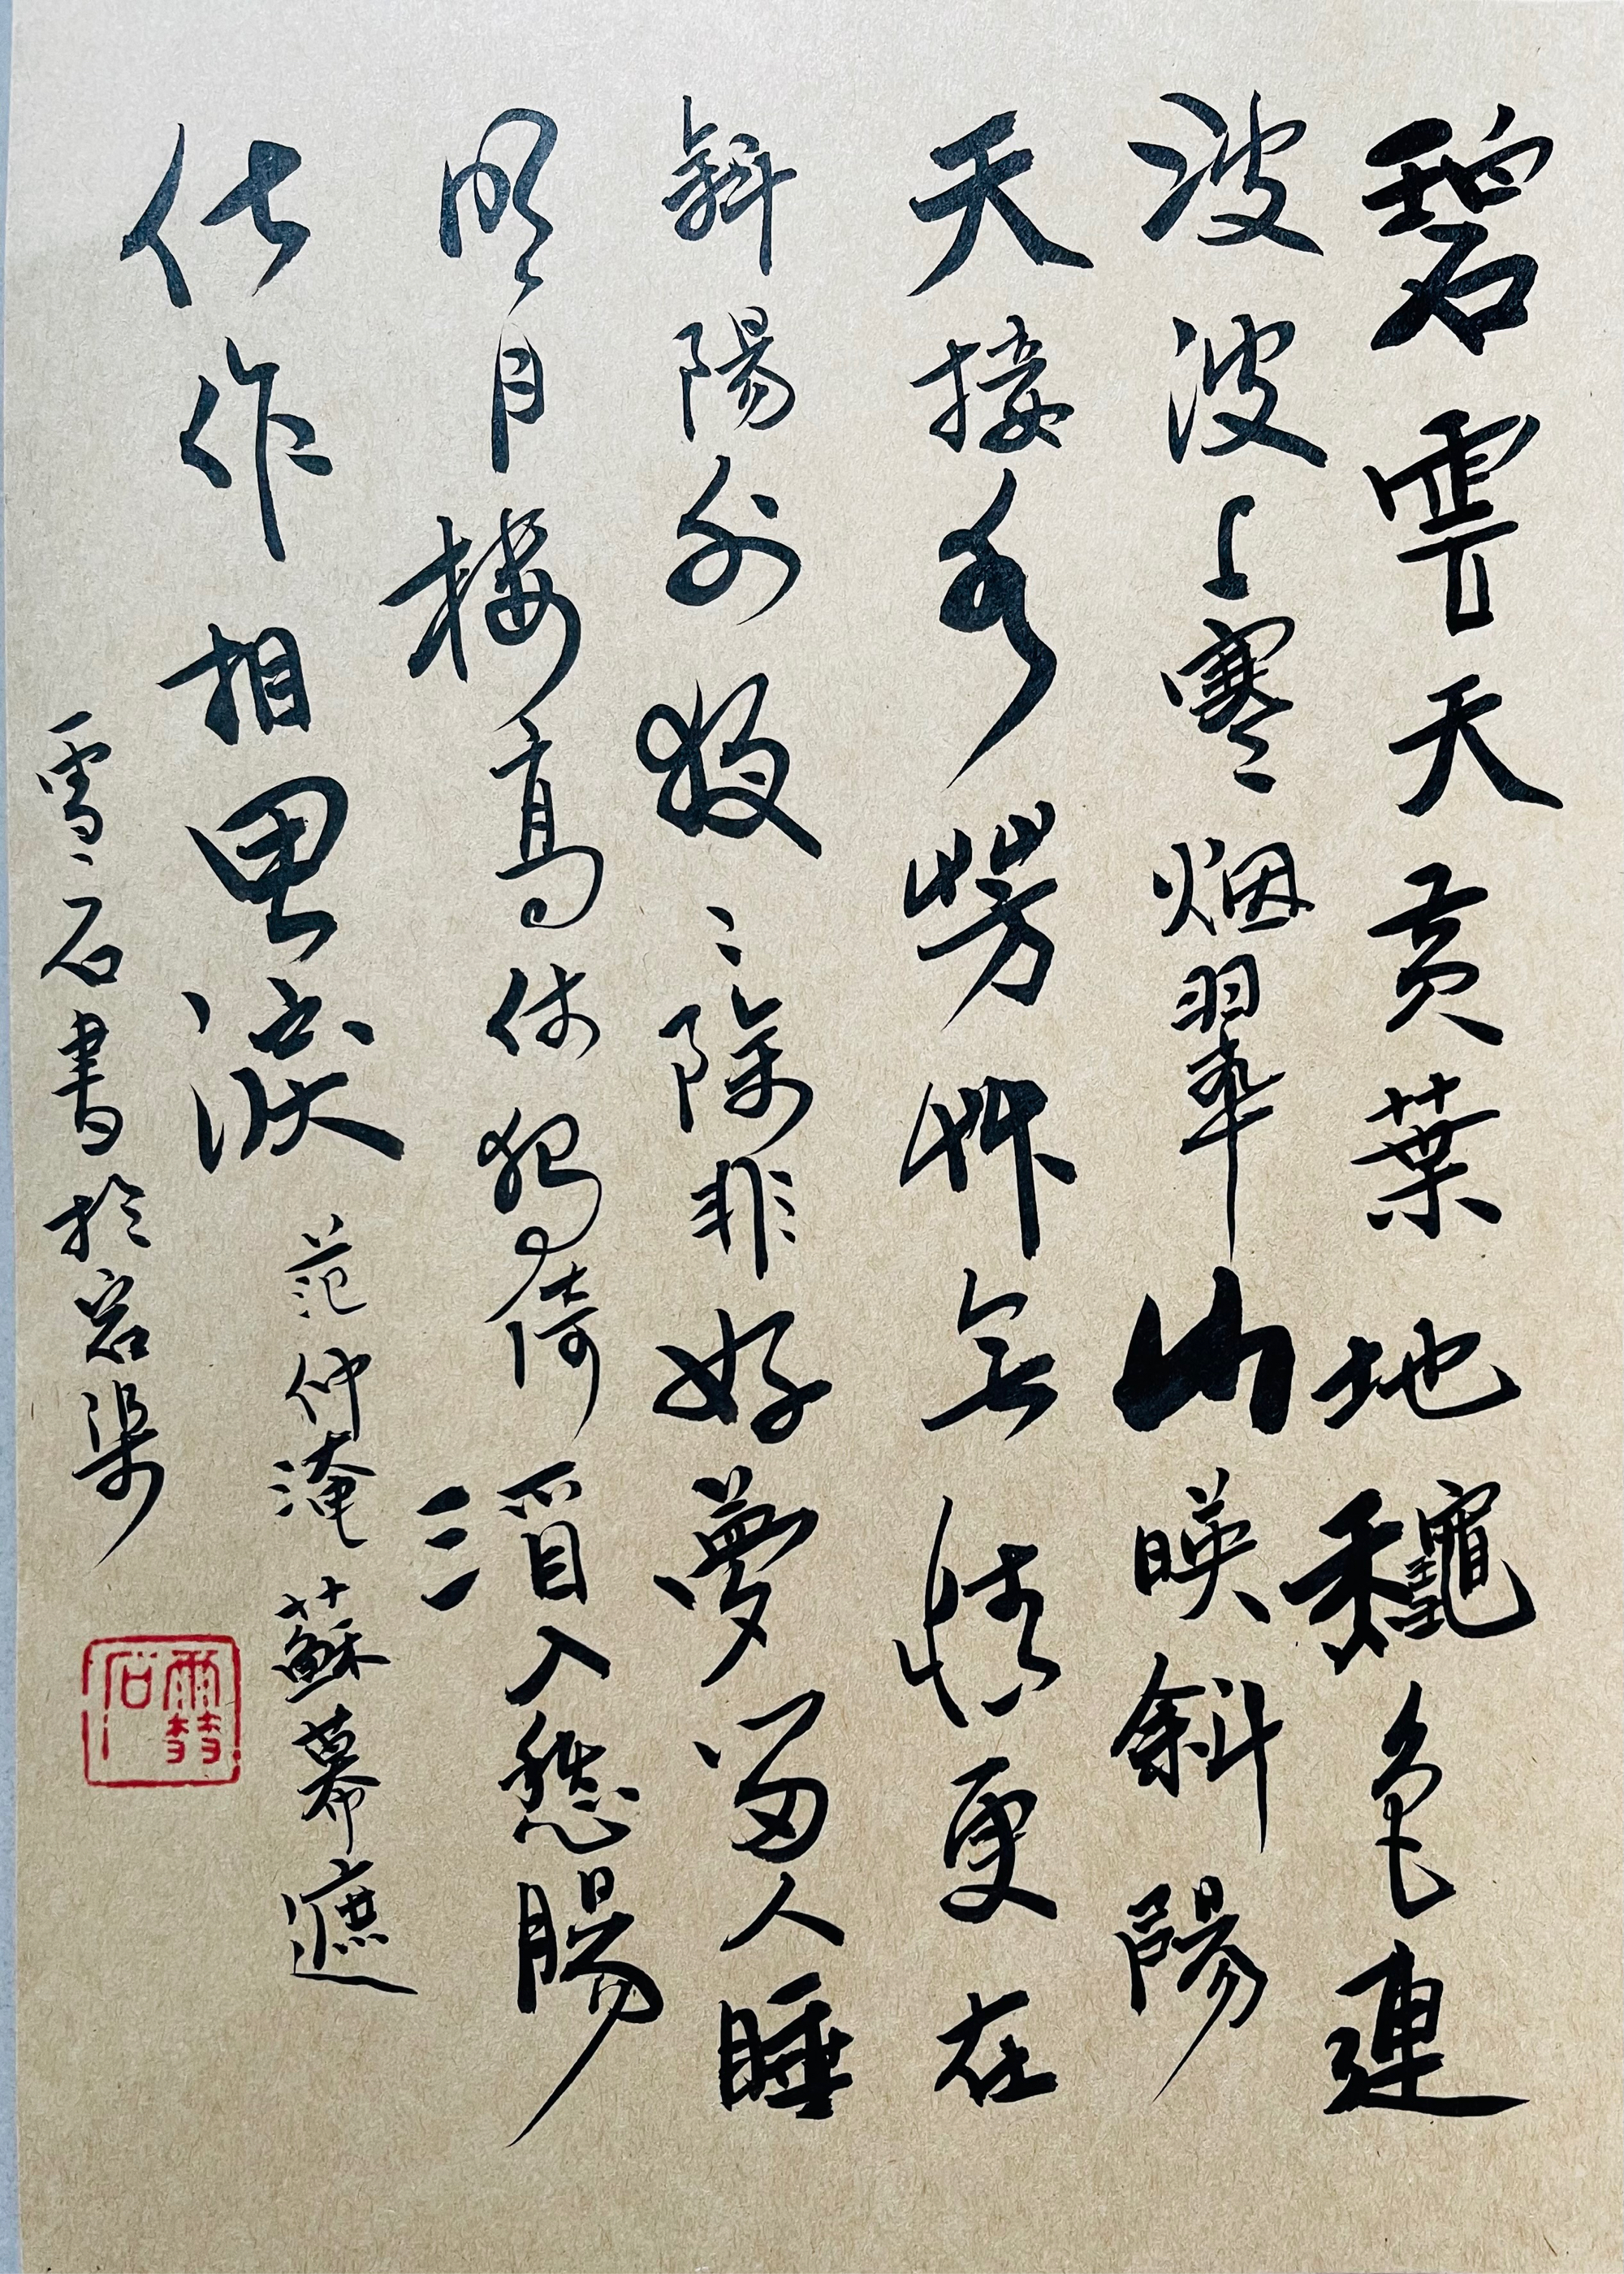 碧雲天黃葉地龝色連
波波上寒烟翠山暎斜陽
天接水芳艸無情更在
斜陽外夜〻除非好夢留人睡
明月樓高休獨倚酒入愁腸
化作相思淚
范仲淹 蘇幕遮
雪石書於宕渠
雪石